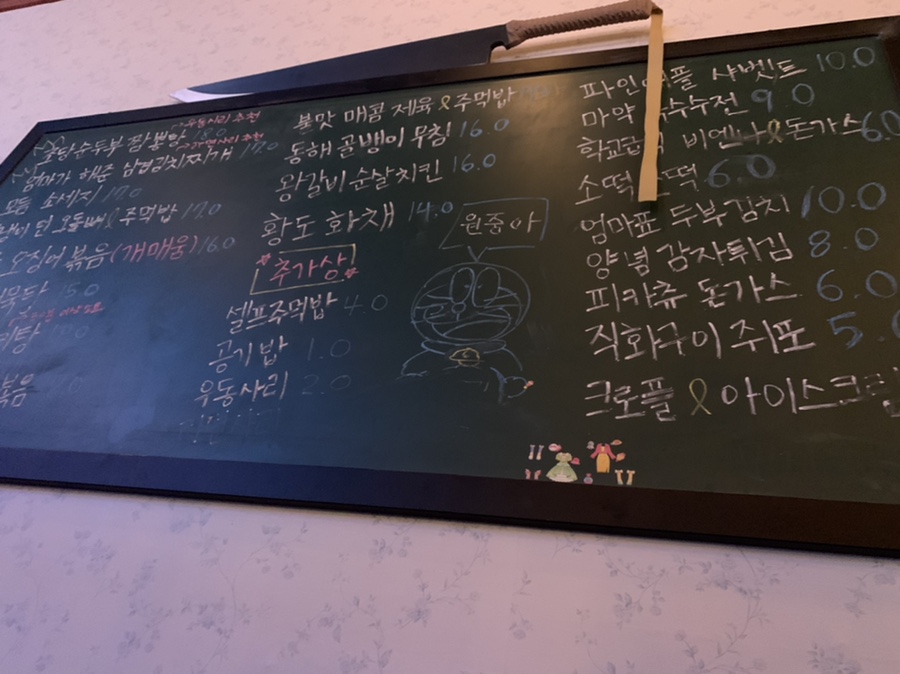 우동사리 추천
불맛 매콤 제육 & 주먹밥
동해 골뱅이 무침 16.0
왕갈비 순살치킨 16.0
황도 화채 14.0
추가상
셀프주먹밥 4.0
공기밥 1.0
우동사리 2.0
원중아
순두부 짬뽕탕 18.0
엄마가 해준 삼겹김치찌개 17.0
모듬 소세지 17.0
오돌뼈 & 주먹밥 17.0
오징어 볶음 (개매움) 16.0
묵탕 15.0
볶음
샤벳트 10.0
마약 옥수수전 9.0
비엔나 & 돈가스 6.0
소떡 6.0
엄마표 두부김치 10.0
양념 감자튀김 8.0
피카츄 돈가스 6.0
직화구이 쥐포 5.0
크로플 & 아이스크림